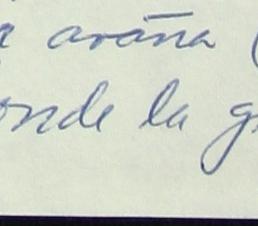 a araña (
onde la g